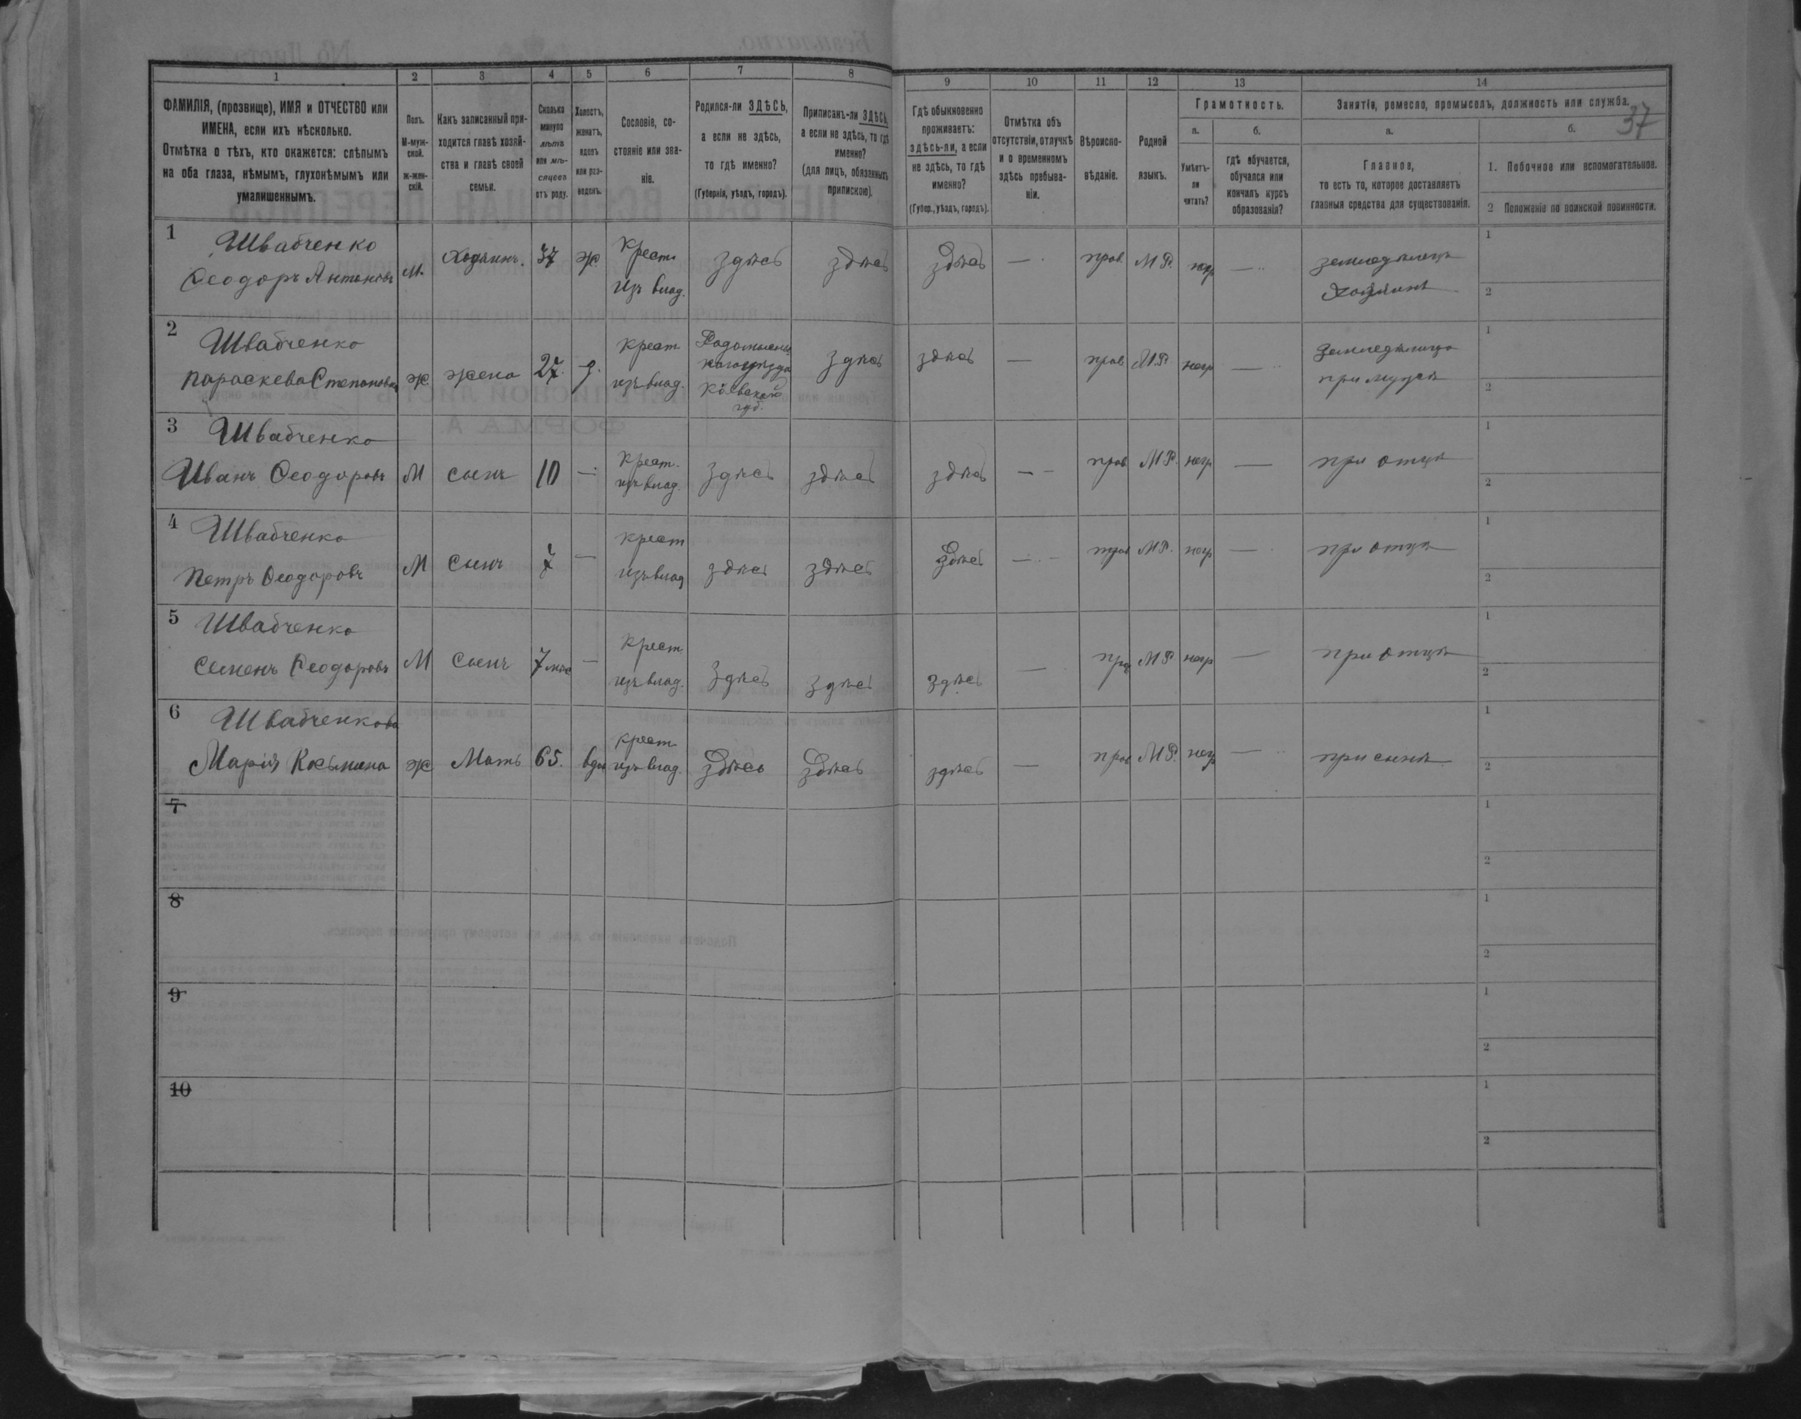 1 2 3 4 5 6 7 8 9 10 11 12 13 14
37
ФАМИЛІЯ, (прозвище), ИМЯ и ОТЧЕСТВО или
ИМЕНА, если ихъ нѣсколько.
Отмѣтка о тѣхъ, кто окажется: слѣпымъ
на оба глаза, нѣмымъ, глухонѣмымъ или
умалишеннымъ.
Полъ.
М-муж-
ской.
Ж-жен-
скій.
Какъ записанный при-
ходится главѣ хозяй-
ства и главѣ своей
семьи.
Сколько
минуло
лѣтъ
или мѣ-
сяцевъ
отъ роду.
Холостъ,
женатъ,
вдовъ
или раз-
веденъ.
Сословіе, со-
стояніе или зва-
ніе.
Родился-ли ЗДѢСЬ,
а если не здѣсь,
то гдѣ именно?
(Губернія, уѣздъ, городъ).
Приписанъ-ли ЗДѢСЬ,
а если не здѣсь, то гдѣ
именно?
(для лицъ, обязанныхъ
припискою).
Гдѣ обыкновенно
проживаетъ:
здѣсь-ли, а если
не здѣсь, то гдѣ
именно?
(Губер., уѣздъ, городъ).
Отмѣтка объ
отсутствіи, отлучкѣ
и о временномъ
здѣсь пребыва-
ніи.
Вѣроиспо-
вѣданіе.
Родной
языкъ.
Грамотность.
а.
Умѣетъ-
ли
читать?
б.
гдѣ обучается,
обучался или
кончилъ курсъ
образованія?
Занятіе, ремесло, промыселъ, должность или служба.
а.
Главное,
то есть то, которое доставляетъ
главныя средства для существованія.
б.
1. Побочное или вспомогательное.
2 Положеніе по воинской повинности.
1
Швабченко
Феодоръ Антоновъ м. хозяинъ. 37 ж крест. изъ влад. здѣсь здѣсь здѣсь — прав М.Р. негр — земледѣлецъ
хозяинъ
1
2
2
Швабченко
Параскева Степанова ж жена 27. з. крест изъ влад. Радомысль
скаго уѣзда
Кіевской
губ. здѣсь здѣсь — прав М.Р. негр — земледѣлица
при мужѣ
1
2
3
Швабченко
Иванъ Феодоровъ М сынъ 10 — крест. изъ влад. здѣсь здѣсь здѣсь — прав М.Р. негр — при отцѣ
1
2
4
Швабченко
Петръ Феодоровъ М сынъ 7 — крест изъ влад здѣсь здѣсь здѣсь — прав М.Р. негр — при отцѣ
1
2
5
Швабченко
Семенъ Феодоровъ М сынъ 7 мѣс — крест изъ влад. здѣсь здѣсь здѣсь — пра М.Р. негр — при отцѣ
1
2
6
Швабченкова
Марія Козьмина ж Мать 65. вдов крест изъ влад. здѣсь здѣсь здѣсь — прав М.Р. негр — при сынѣ.
1
2
7
1
2
8
1
2
9
1
2
10
1
2